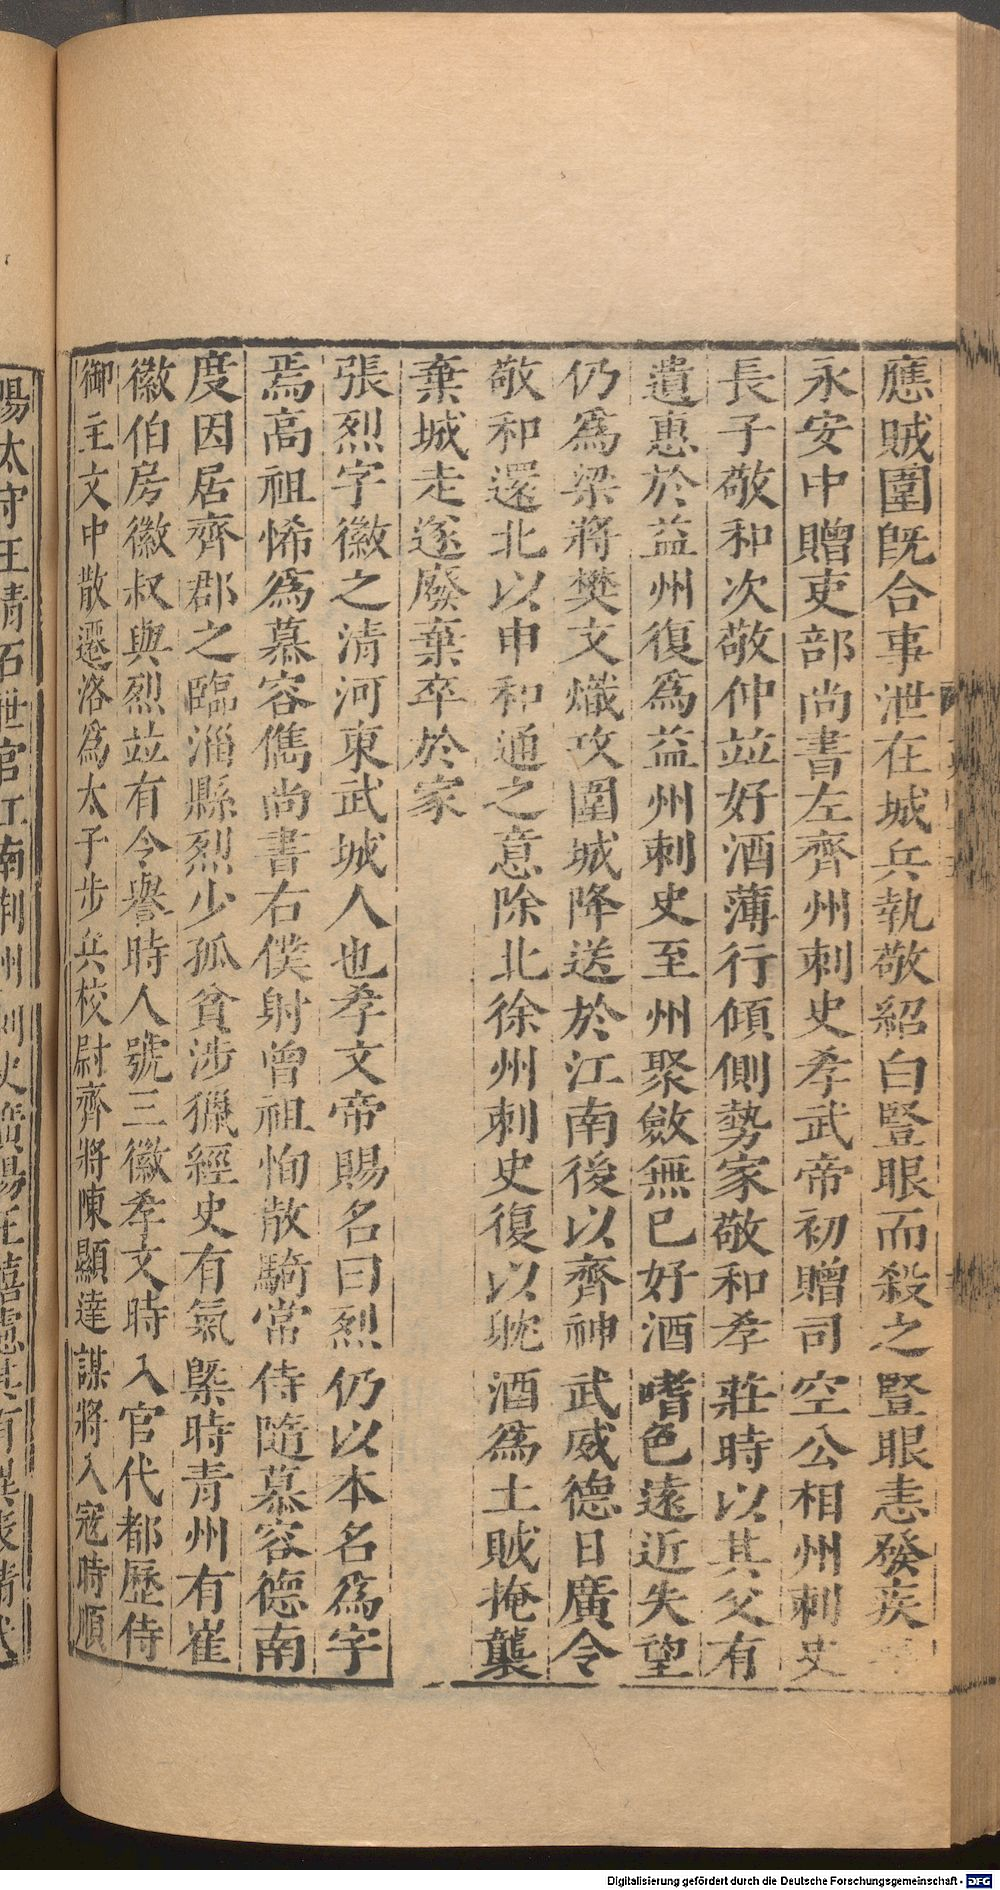 應賊圍既合事泄在城兵執敬紹白豎眼而殺之豎眼恚發疾
永安中贈吏部尚書左齊州刺史孝武帝初贈司空公相州刺史
長子敬和次敬仲並好酒薄行傾側勢家敬和孝莊時以其父有
遺惠於益州復爲益州刺史至州聚斂無已好酒嗜色遠近失望
仍爲梁將樊文熾攻圍城降送於江南後以齊神武威德日廣令
敬和還北以申和通之意除北徐州刺史復以耽酒爲土賊掩襲
棄城走遂廢棄卒於家
張烈字徽之清河東武城人也孝文帝賜名曰烈仍以本名爲字
焉高祖悕爲慕容儁尚書右僕射曾祖恂散騎常侍隨慕容德南
度因居齊郡之臨淄縣烈少孤貧涉獵經史有氣槩時青州有崔
徽伯房徽叔與烈並有令譽時人號三徽孝文時入官代都歷侍
御主文中散遷洛爲太子步兵校尉齊將陳顯達謀將入寇時順
陽太守王清石世官江南荆州刺史廣陽王嘉慮其有異表請代
Digitalisierung gefördert durch die Deutsche Forschungsgemeinschaft - DFG